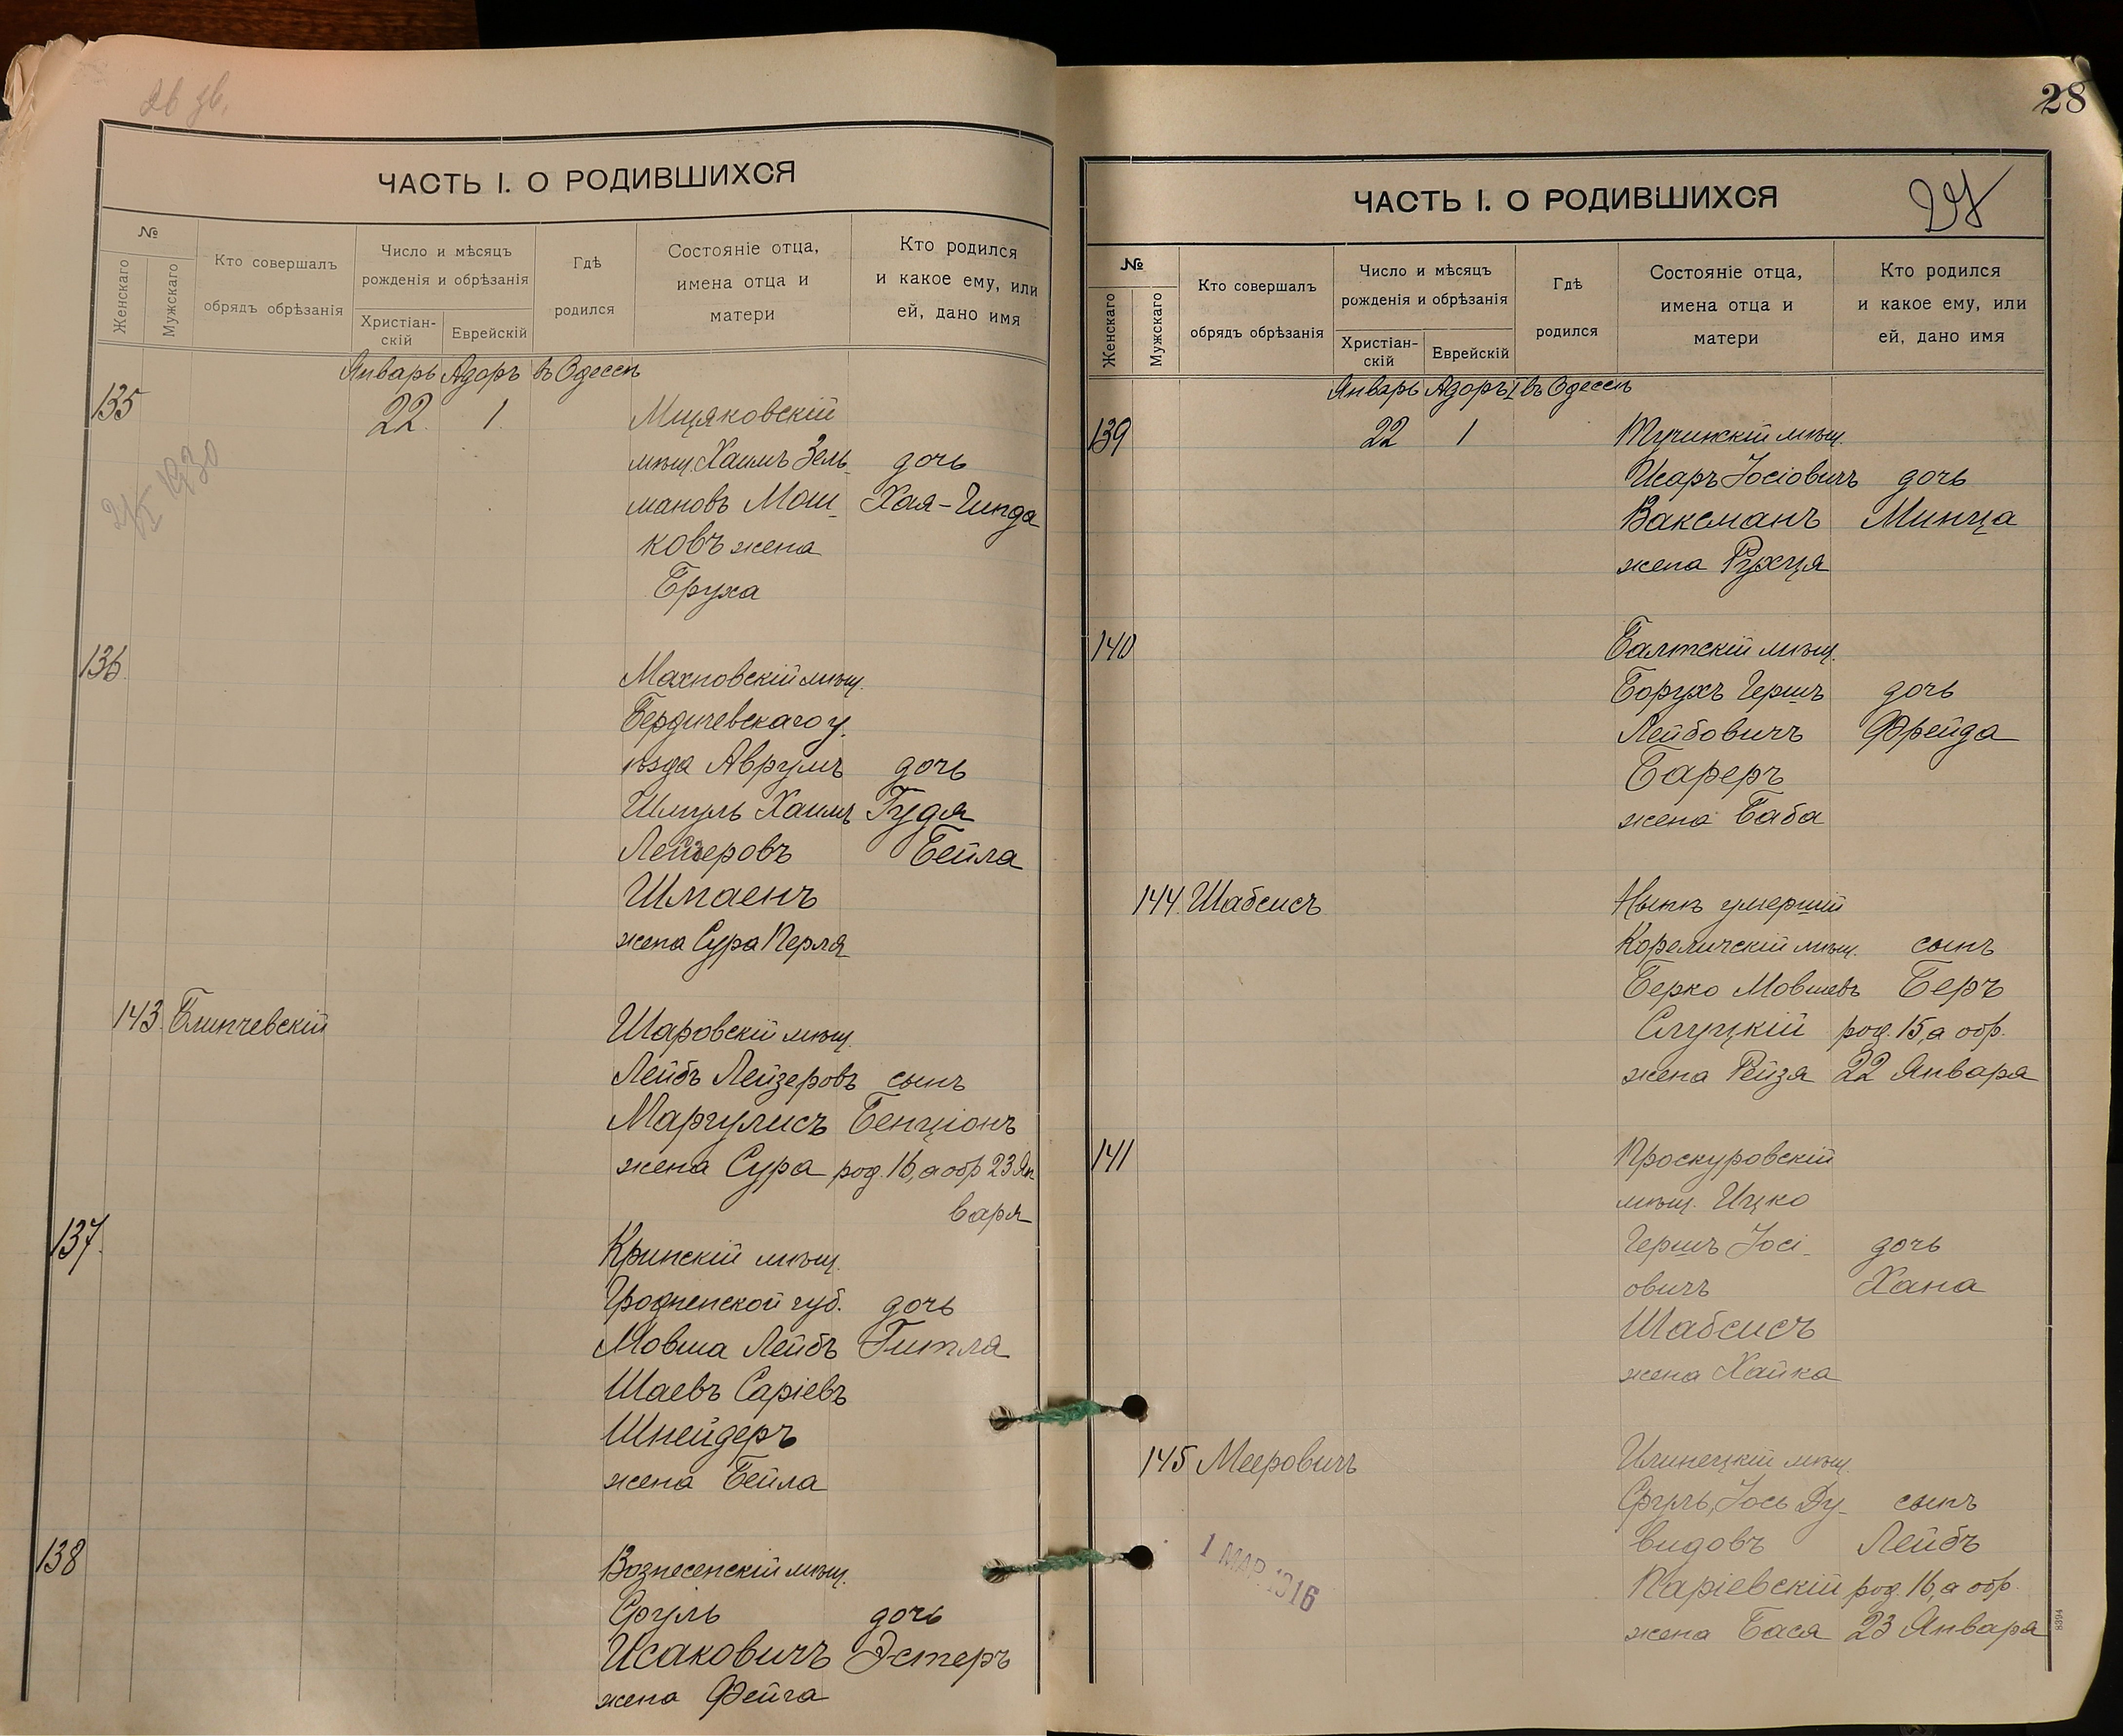 ЧАСТЬ I. О РОДИВШИХСЯ
№
Женскаго
Мужскаго
Кто совершалъ
обрядъ обрѣзанія
Число и мѣсяцъ
рожденія и обрѣзанія
Христіан-
скій
Еврейскій
Гдѣ
родился
Состояніе отца,
имена отца и
матери
Кто родился
и какое ему, или
ей, дано имя
Январь Адоръ въ Одессѣ
135 22 1
мѣщ. Хаимъ Зель- дочь
мановъ Мош- Хая-Гинда
ковъ жена
Бруха
136
Махновскій мѣщ.
Бердичевскаго у-
ѣзда Аврумъ дочь
Шмуль Хаимъ Гудя
Лейзеровъ Бейла
Шмаенъ
жена Сура Перля
143 Блинчевскій Шаровскій мѣщ.
Лейбъ Лейзеровъ сынъ
Маргулисъ Бенціонъ
жена Сура род. 16, а обр 23 Ян
варя
137
Кринскій мѣщ.
Гродненской губ. дочь
Мовша Лейбъ Гитля
Шаевъ Саріевъ
Шнейдеръ
жена Бейла
138 Вознесенскій мѣщ.
Сруль дочь
Исаковичъ Эстеръ
жена Фейга
28
ЧАСТЬ I. О РОДИВШИХСЯ
27
№
Женскаго
Мужскаго
Кто совершалъ
обрядъ обрѣзанія
Число и мѣсяцъ
рожденія и обрѣзанія
Христіан-
скій
Еврейскій
Гдѣ
родился
Состояніе отца,
имена отца и
матери
Кто родился
и какое ему, или
ей, дано имя
Январь Адоръ I въ Одессѣ
139 22 1 Тучинскій мѣщ.
Исаръ Іосіовичъ дочь
Ваксманъ Минца
жена Рухця
140 Балтскій мѣщ.
Борухъ Гершъ дочь
Лейбовичъ Фрейда
Бареръ
жена Баба
144 Шабсисъ Нынѣ умершій
Кореличскій мѣщ. сынъ
Берко Мовшевъ Беръ
Слуцкій род. 15, а обр.
жена Рейзя 22 Января
141 Проскуровскій
мѣщ. Ицко
Гершъ Іосі- дочь
овичъ Хана
Шабсисъ
жена Хайка
145 Мееровичъ Илинецкій мѣщ.
Сруль, Іось Ду- сынъ
видовъ Лейбъ
Паріевскій род. 16, а обр.
жена Бася 23 Января
1 МАР 1916
8394